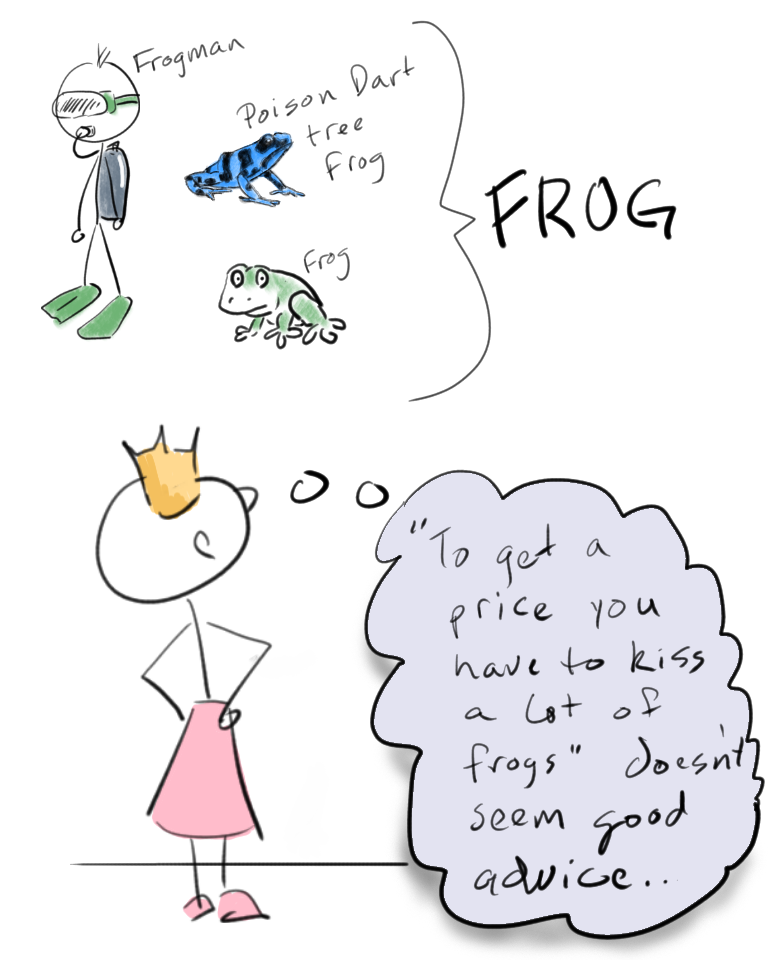 Frogman
Poison Dart
tree
Frog
Frog
FROG
"To get a
price you
have to kiss
a lot of
frogs" doesn't
seem good
advice..